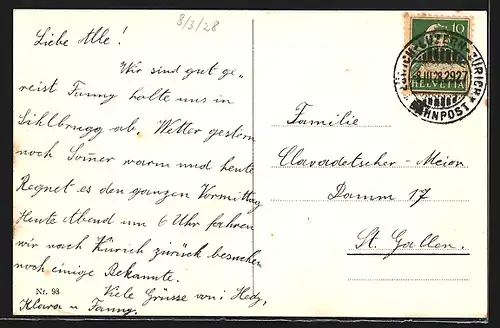 8/3/28
Liebe Alle!
Wir sind gut ge=
reist Fanny holte uns in
Sihlbrugg ab, Wetter gestern
noch Somer warm und heute
Regnet es den ganzen Vormittag
Heute Abend um 6 Uhr fahren
wir nach Zürich zürück besuchen
noch einige Bekannte.
Viele Grüsse von: Hedy,
Klara u Fanny.
Nr. 98
10
HELVETIA
ZÜRICH
BAHNPOST
8.III.28.2927
Familie
Clavadetscher-Meier
Damm 17
St. Gallen.